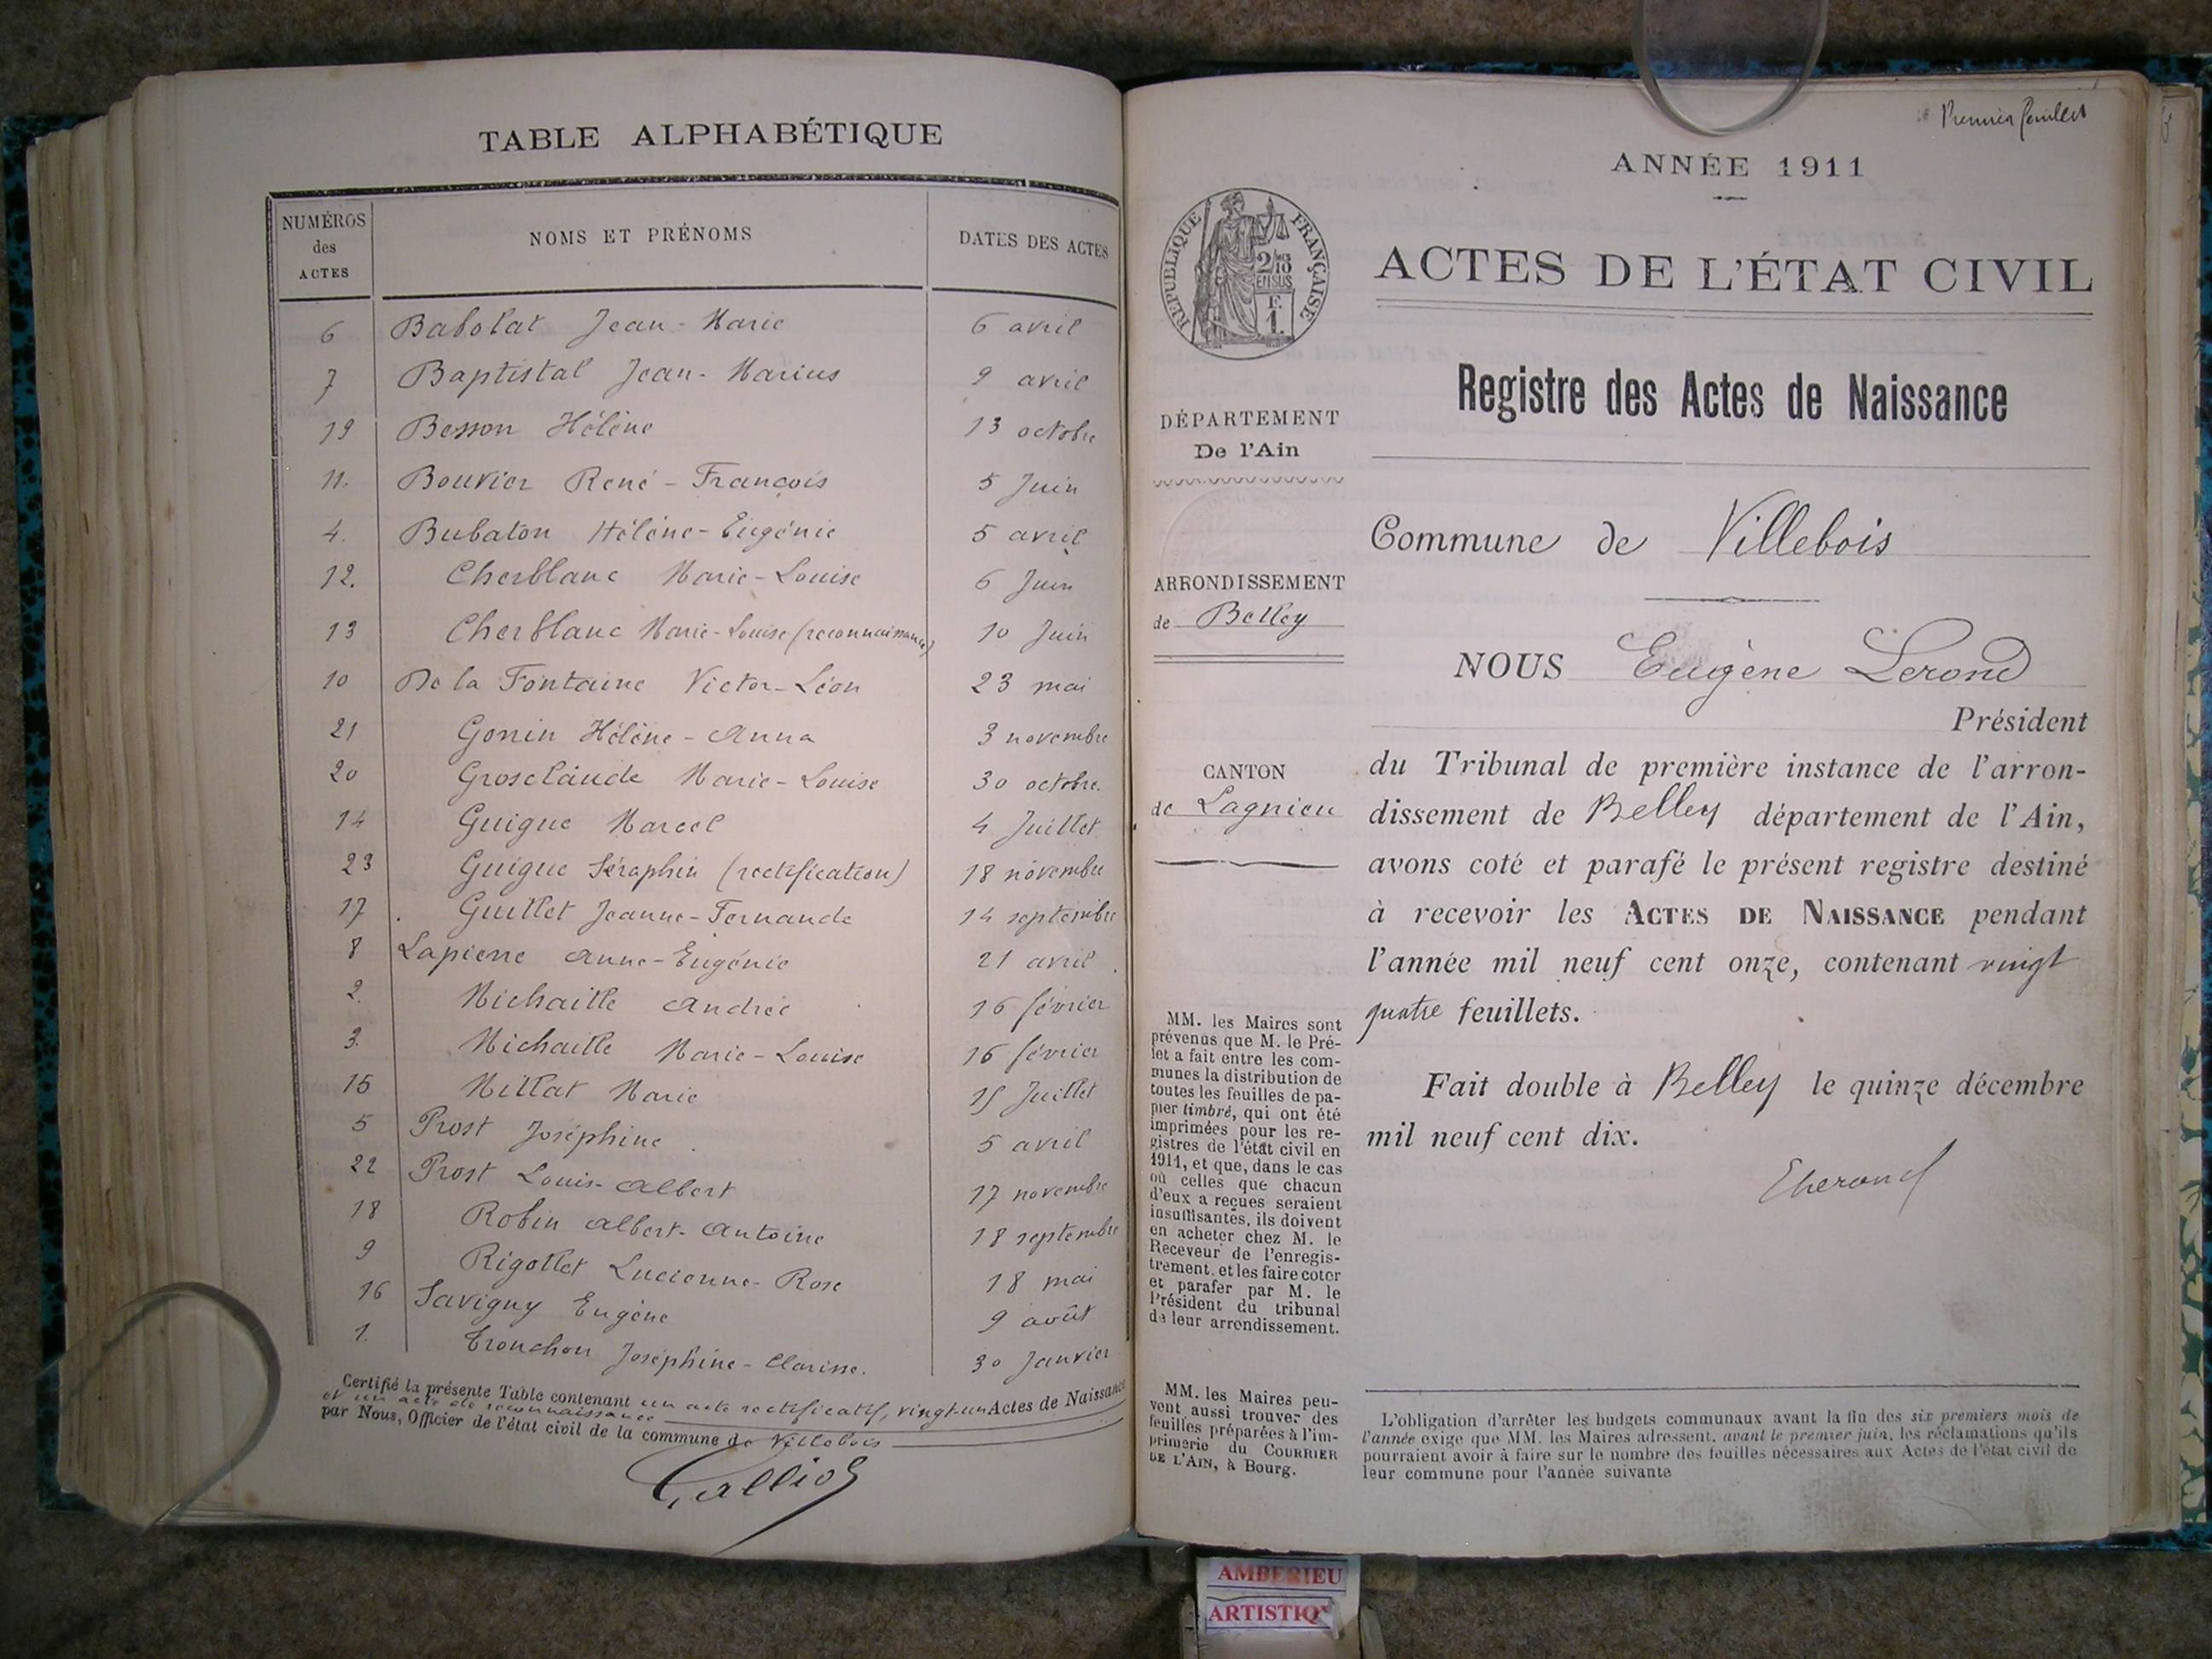 TABLE ALPHABÉTIQUE
NUMÉROS des ACTES NOMS ET PRÉNOMS DATES DES ACTES
6 Babolat Jean-Marie 6 avril
7 Baptistal Jean-Marius 9 avril
19 Besson Hélène 13 octobre
11. Bouvier René-François 5 Juin
4. Bubaton Hélène-Eugénie 5 avril
12. Cherblanc Marie-Louise 6 Juin
13 Cherblanc Marie-Louise (reconnaissance) 10 Juin
10 De la Fontaine Victor-Léon 23 mai
21 Gonin Hélène-Anna 3 novembre
20 Grosclaude Marie-Louise 30 octobre.
14 Guigue Marcel 4 Juillet
23 Guigue Séraphin (rectification) 18 novembre
17 Guillet Jeanne-Fernande 14 septembre
8 Lapierre Anne-Eugénie 21 avril
2. Michaille Andrée 16 février
3. Michaille Marie-Louise 16 février
15 Millat Marie 15 Juillet
5 Prost Joséphine 5 avril
22 Prost Louis-Albert 17 novembre
18 Robin Albert-Antoine 18 septembre
9 Rigollet Lucienne-Rose 18 mai
16 Savigny Eugène 9 août
1. Tronchon Joséphine-Clarisse. 30 Janvier
Certifié la présente Table contenant un acte rectificatif, vingt-un Actes de Naissance
et un acte de reconnaissance
par Nous, Officier de l'état civil de la commune de Villebois
Premier feuillet
ANNÉE 1911
RÉPUBLIQUE FRANÇAISE
2/10
EN SUS
F.
1.
ACTES DE L'ÉTAT CIVIL
Registre des Actes de Naissance
DÉPARTEMENT
De l'Ain
Commune de Villebois
ARRONDISSEMENT
de Belley
NOUS Eugène Lerond
Président
CANTON
de Lagnieu
du Tribunal de première instance de l'arron-
dissement de Belley département de l'Ain,
avons coté et parafé le présent registre destiné
à recevoir les ACTES DE NAISSANCE pendant
l'année mil neuf cent onze, contenant vingt
quatre feuillets.
Fait double à Belley le quinze décembre
mil neuf cent dix.
MM. les Maires sont
prévenus que M. le Pré-
fet a fait entre les com-
munes la distribution de
toutes les feuilles de pa-
pier timbré, qui ont été
imprimées pour les re-
gistres de l'état civil en
1911, et que, dans le cas
où celles que chacun
d'eux a reçues seraient
insuffisantes, ils doivent
en acheter chez M. le
Receveur de l'enregis-
trement, et les faire coter
et parafer par M. le
Président du tribunal
de leur arrondissement.
MM. les Maires peu-
vent aussi trouver des
feuilles préparées à l'im-
primerie du COURRIER
DE L'AIN, à Bourg.
L'obligation d'arrêter les budgets communaux avant la fin des six premiers mois de
l'année exige que MM. les Maires adressent, avant le premier juin, les réclamations qu'ils
pourraient avoir à faire sur le nombre des feuilles nécessaires aux Actes de l'état civil de
leur commune pour l'année suivante
AMBERIEU
ARTISTIQ